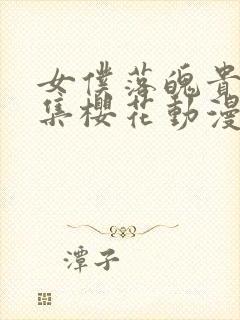 女僕落魄貴
集櫻花動漫
潭子